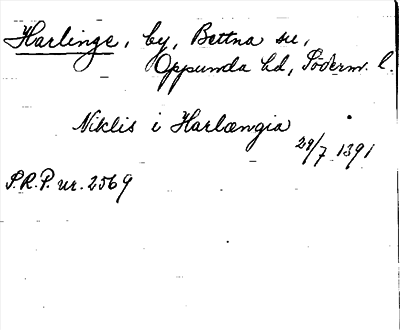 Harlinge, by, Bettna su,
Oppunda hd, Söderm. l.
Niklis i Harlængia
29/7 1391
S.R.P. nr. 2569